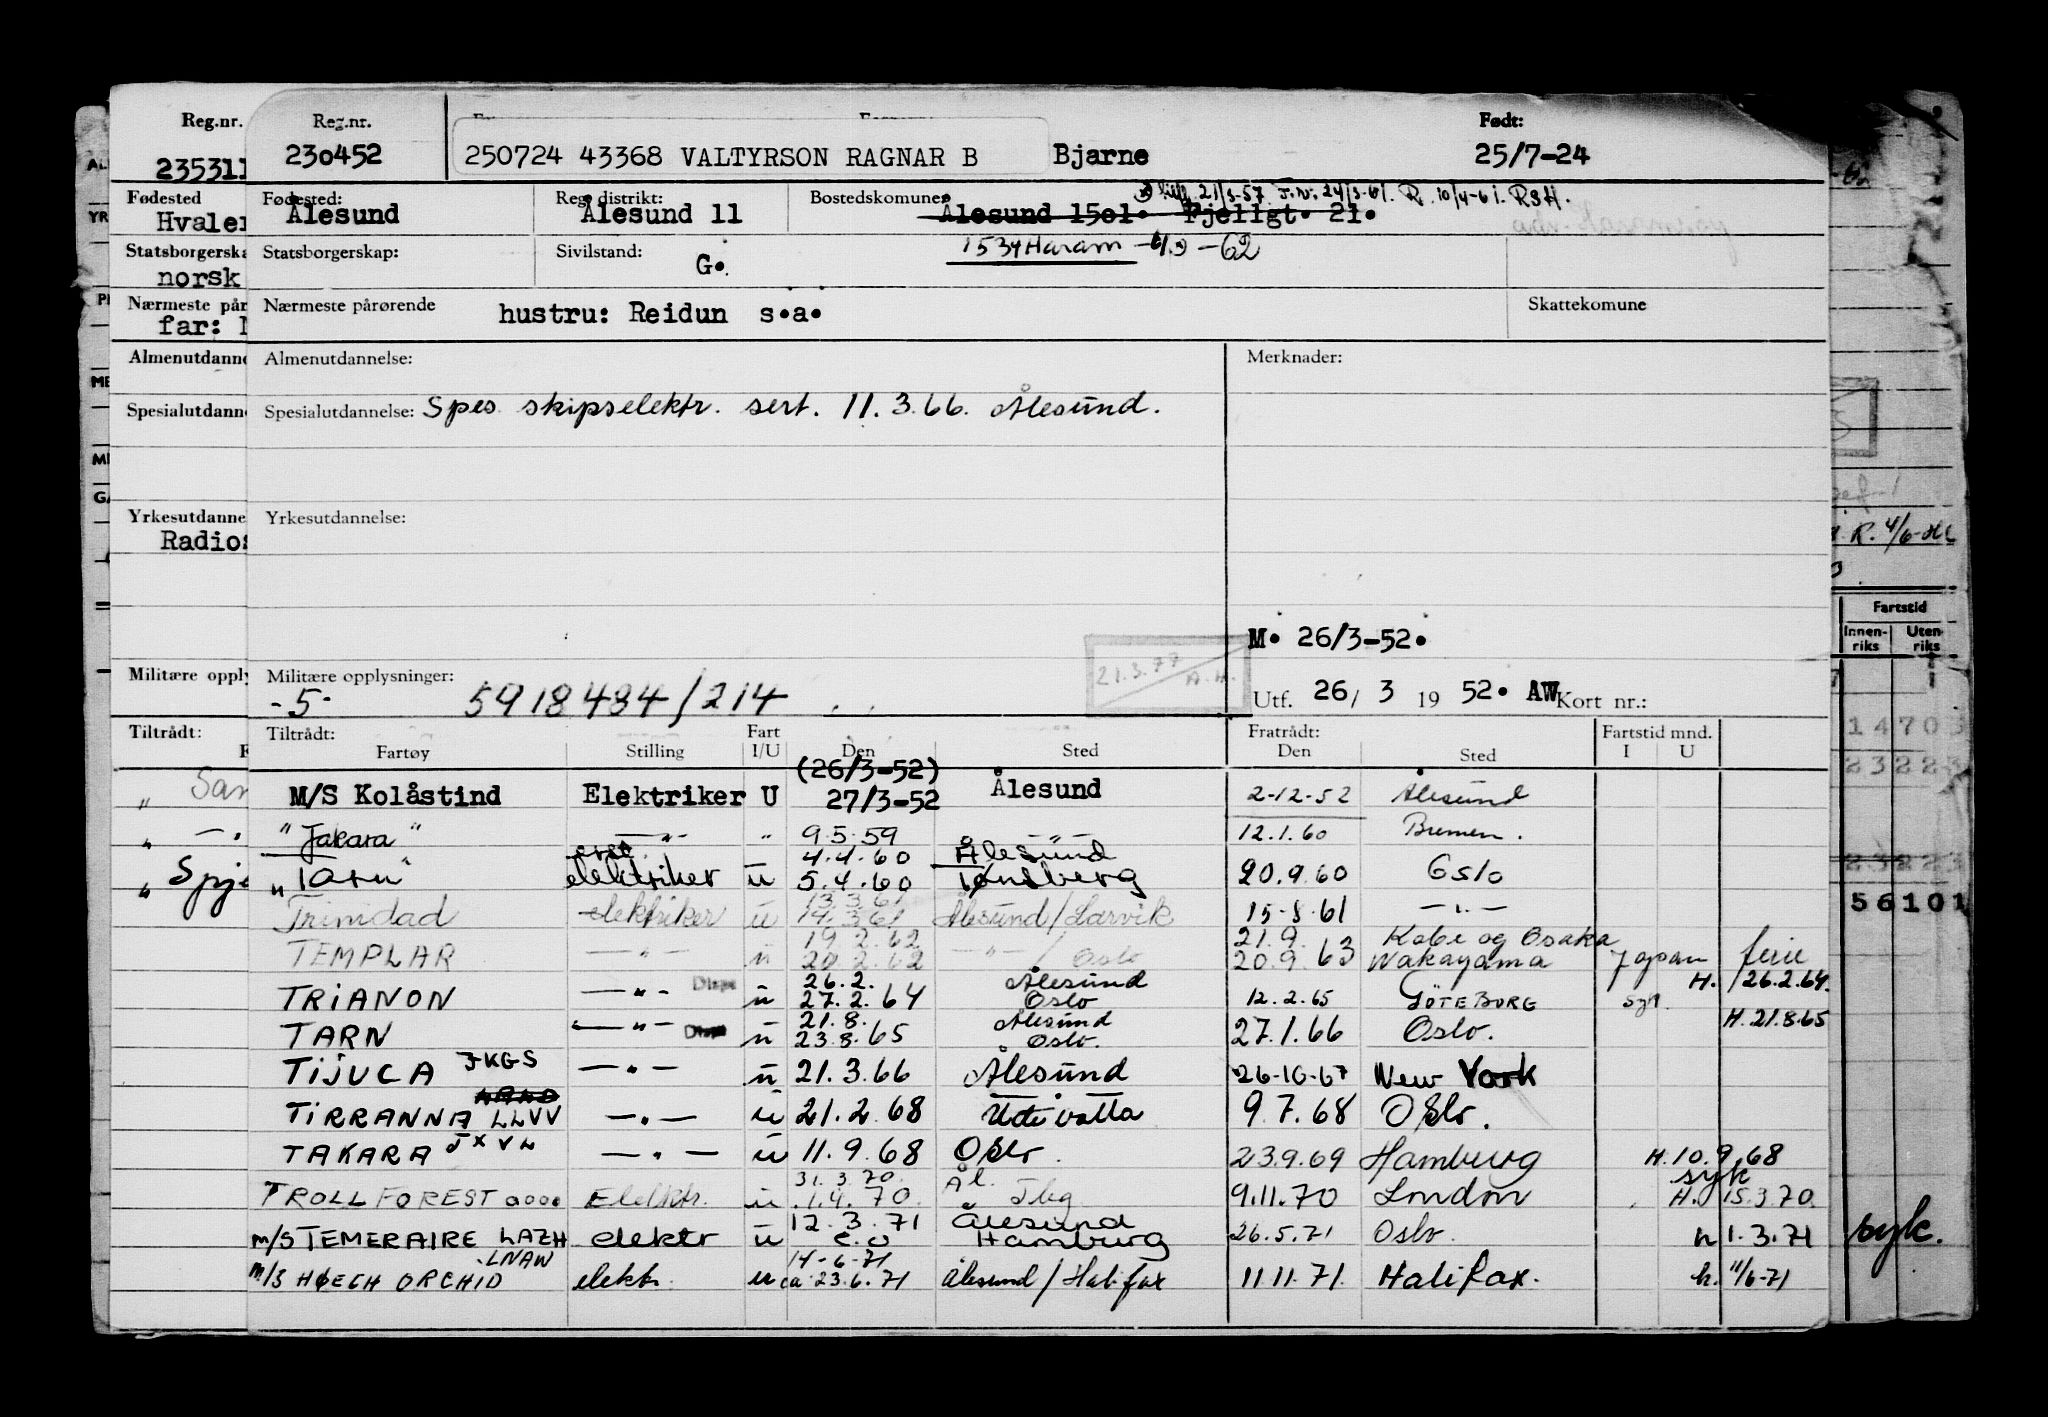 Reg.nr. Reg.nr. Født:
235311 230452 250724 43368 VALTYRSON RAGNAR B Bjarne 25/7-24
Fødested Fødested: Reg distrikt: Bostedskommune 21/3-57 24/3-61. R. 10/4-61. RSH.
Hvaler Ålesund Ålesund 11 Ålesund 15ol. Fjellgt. 21.
Statsborgerska Statsborgerskap: Sivilstand: G. 1534 Haram -62
norsk
Nærmeste pår Nærmeste pårørende hustru: Reidun s.a. Skattekomune
far:
Almenutdanne Almenutdannelse: Merknader:
Spesialutdanne Spesialutdannelse: Spes skipselektr. sert. 11.3.66. Ålesund.
Yrkesutdanne Yrkesutdannelse:
Radios
R. 4/6
M. 26/3-52.
Fartstid
Innen-riks Uten-riks
Militære opply Militære opplysninger: 21.3.77 A.H.
-5- 5918484/214 Utf. 26/ 3 19 52. AW Kort nr.:
14703
Tiltrådt: Tiltrådt: Fart Fratrådt: Fartstid mnd.
Fartøy Stilling I/U Den Sted Den Sted I U
23223
(26/3-52)
M/S Kolåstind Elektriker U 27/3-52 Ålesund 2-12-52 Ålesund
"Jakara" —"— " 9.5.59 12.1.60 Bremen.
4.4.60 Ålesund
23223
"Tarn" elektriker u 5.4.60 Tønsberg 20.9.60 Oslo
13.3.61
56101
Trinidad elektriker u 14.3.61 Ålesund/Larvik 15-8.61 —"—
19.2.62 21.9. Kobe og Osaka
TEMPLAR —"— u 20.2.62 —"—/ Oslo 20.9.63 Wakayama Japan ferie
26.2. Ålesund H. 26.2.64.
TRIANON —"— Disp u 27.2.64 Oslo 12.2.65 GÖTEBORG syk.
21.8. Ålesund H. 21.8.65
TARN —"— Disp u 23.8.65 Oslo. 27.1.66 Oslo.
TIJUCA JKGS —"— u 21.3.66 Ålesund 26-10-67 New York
TIRRANNA LLVV —"— u 21.2.68 Udevalla 9.7.68 Oslo.
TAKARA JXVL —"— u 11.9.68 Oslo. 23.9.69 Hamburg H. 10.9.68
31.3.70 Ål. syk
TROLL FOREST Elektr. u 1.4.70 Tbg 9.11.70 London H. 15.3.70.
12.3.71 Ålesund
M/S TEMERAIRE LAZH elektr u Hamburg 26.5.71 Oslo. h 1.3.71 syk.
LNAW 14-6-71
M/S HØEGH ORCHID elektr. u ca 23.6.71 Ålesund/Halifax 11.11.71. Halifax. h. 11/6-71